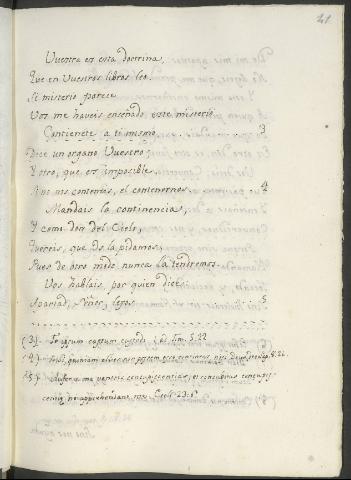 21
Vuestra es esta doctrina,
Que en Vuestros libros leo.
Si misterio parece
Vos me haveis enseñado este misterio.
Contienete a ti mismo 3
Dice un organo Vuestro
Y otro, que es imposible
Si no nos conteneis, el contenernos. 4
Mandais la continencia,
Y como don del Cielo,
Quereis, que Os la pidamos,
Pues de otro modo nunca la tendremos.
Vos hablais, por quien dice:
Apartad, Señor, lejos 5
(3) Te ipsum castum custodi. 1. ad Tim. 5.22
(4) aliter non possem esse continens, nisi Deus det. Sap. 8.21.
(5) Aufer a me ventris concupiscentias, et concubitus concupiscentiæ ne apprehendant me. Eccli 23.6